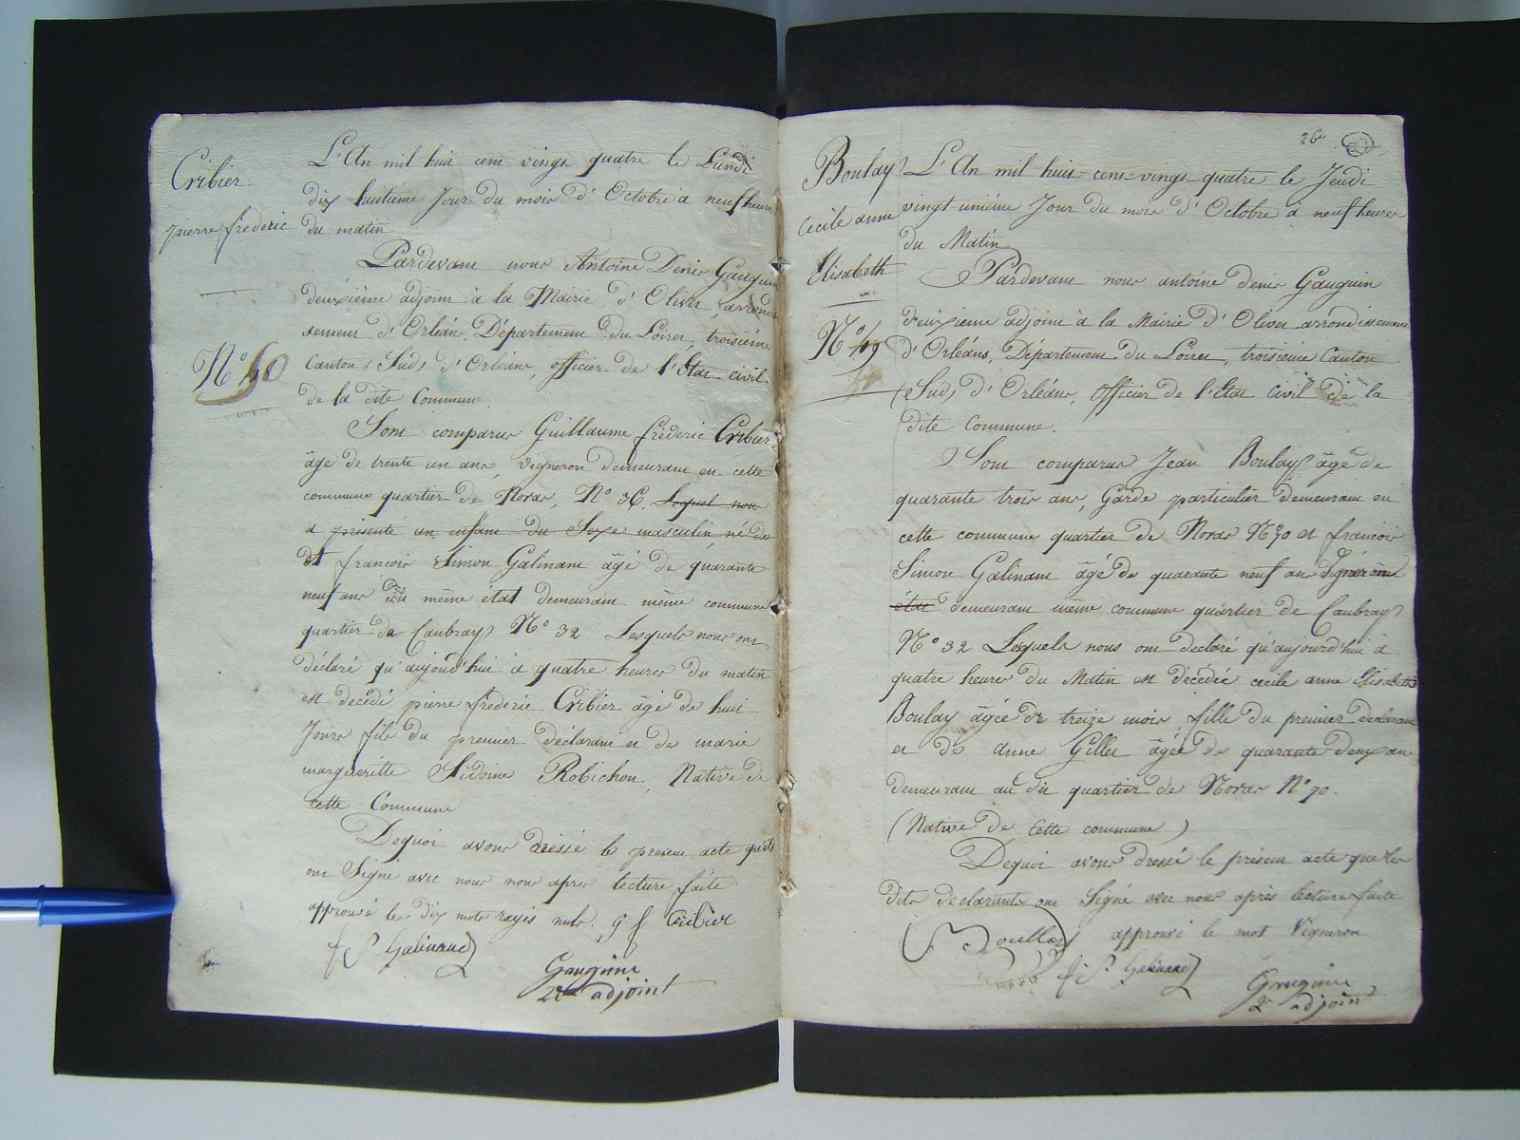 Cribier
pierre frederic
N° 48
L'An mil huit cent vingt quatre le Lundi
dix huitieme Jour du mois d'Octobre a neuf heures
du matin
Pardevant nous Antoine Denis Gauguin
deuxième adjoint à la Mairie d'Olivet, arrondis
sement d'Orléans Département du Loiret, troisieme
Canton (Sud) d'Orléans, officier de l'Etat civil
de la dite Commune.
Sont comparus Guillaume frederic Cribier
âgé de trente un ans, vigneron demeurant en cette
commune quartier de Noras, N° 36, Lequel nous
a présenté un enfant du Sexe masculin né de
et francois Simon Galinant âgé de quarante
neuf ans même etat demeurant même commune
quartier de Caubray N° 32 Lesquels nous ont
déclaré qu'aujourd'hui à quatre heures du matin
est decédé pierre frederic Cribier âgé de huit
Jours fils du premier déclarant et de marie
margueritte Sidoine Robichon, Native de
cette Commune
Dequoi avons dressé le present acte qu'ils
ont Signé avec nous après lecture faite
approuvé les dix mots rayés nuls. g f Cribier
f S Galinand
Gauguin
2me adjoint
26e
Boulay
Cecile anne
Elisabeth
N° 49
L'An mil huit cent vingt quatre le Jeudi
vingt unième Jour du mois d'Octobre à neuf heures
du Matin
Pardevant nous antoine denis Gauguin
deuxieme adjoint à la Mairie d'Olivet arrondissement
d'Orléans, Département du Loiret, troisieme Canton
(Sud) d'Orléans, Officier de l'Etat civil de la
dite Commune.
Sont comparus Jean Boulay âgé de
quarante trois ans, Garde particulier demeurant en
cette commune quartier de Noras N° 70 et francois
Simon Galinant âgé de quarante neuf ans Vigneron
état demeurant même commune quartier de Caubray
N° 32 Lesquels nous ont declaré qu'aujourd'hui à
quatre heures du Matin est décédée cecile anne Elisabeth
Boulay âgée de treize mois fille du premier declarant
et de Anne Gillet âgée de quarante deux ans
demeurant au dit quartier de Noras N° 70.
(Native de Cette commune)
Dequoi avons dressé le présent acte que les
dits declarants ont Signé avec nous après lecture faite
Boullay approuvé le mot Vigneron
f S Galinand
Gauguin
2e adjoint